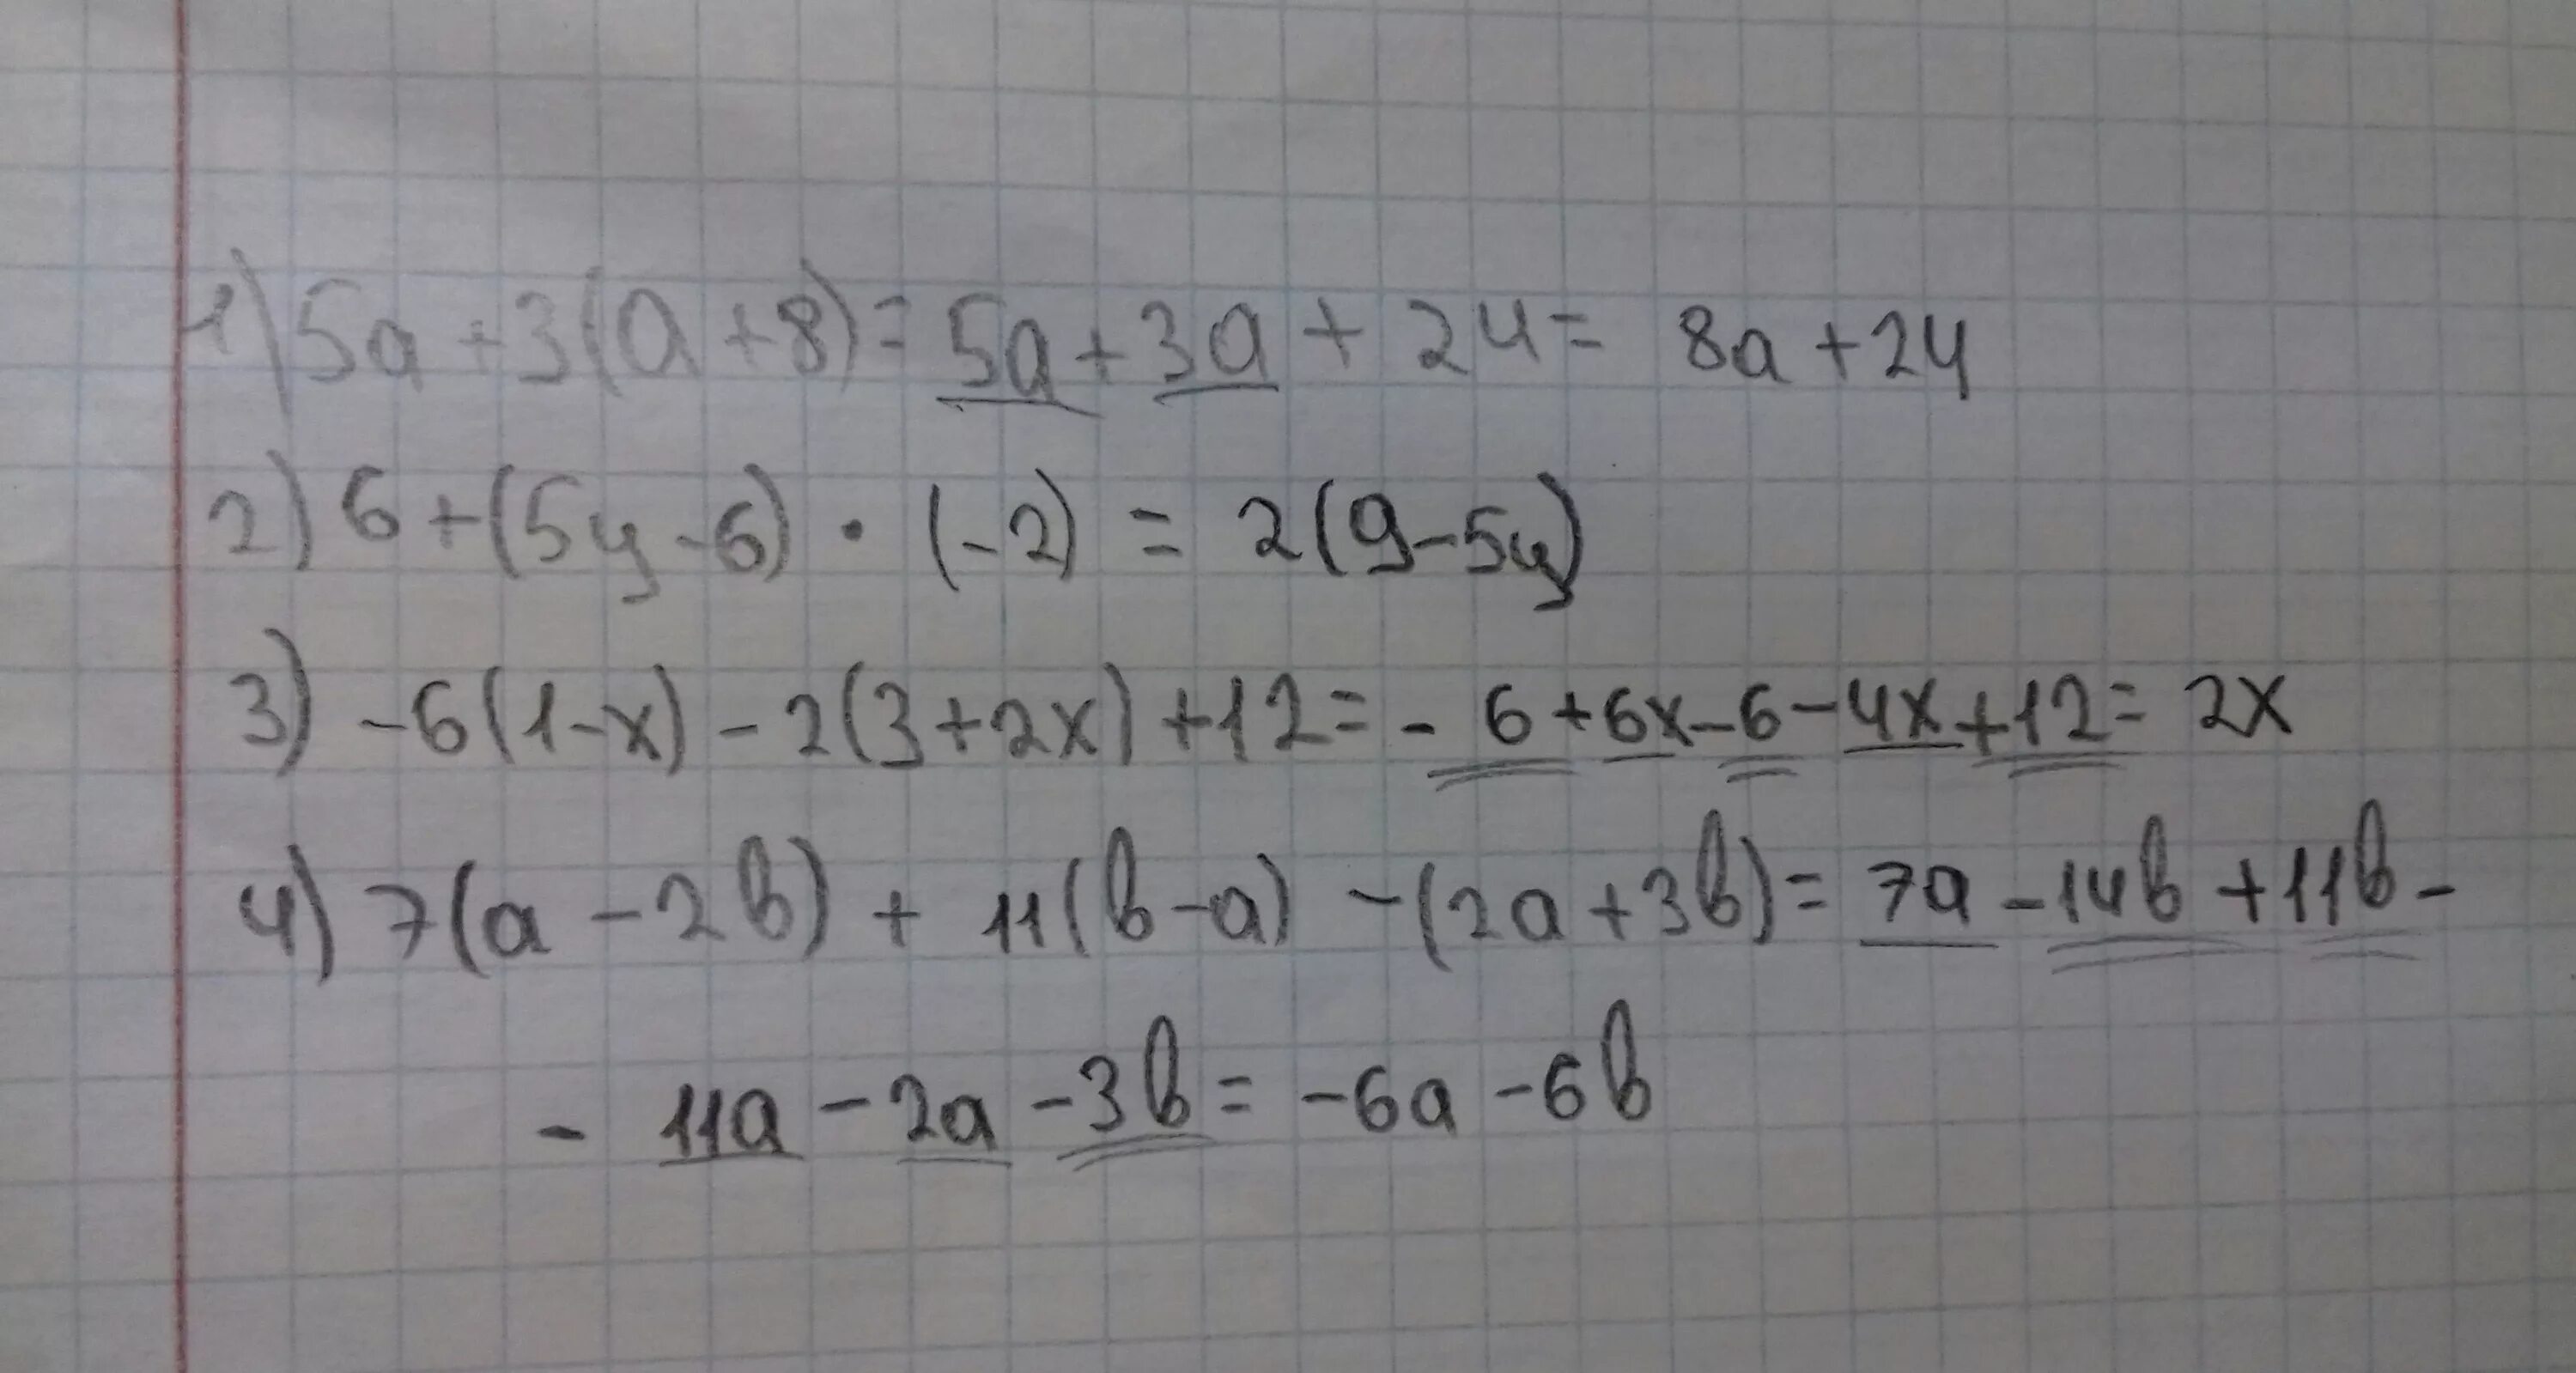 1) 5a + 3(a + 8) = 5a + 3a + 24 = 8a + 24
2) 6 + (5y - 6) · (-2) = 2(9 - 5y)
3) -6(1 - x) - 2(3 + 2x) + 12 = - 6 + 6x - 6 - 4x + 12 = 2x
4) 7(a - 2b) + 11(b - a) - (2a + 3b) = 7a - 14b + 11b -
- 11a - 2a - 3b = -6a - 6b